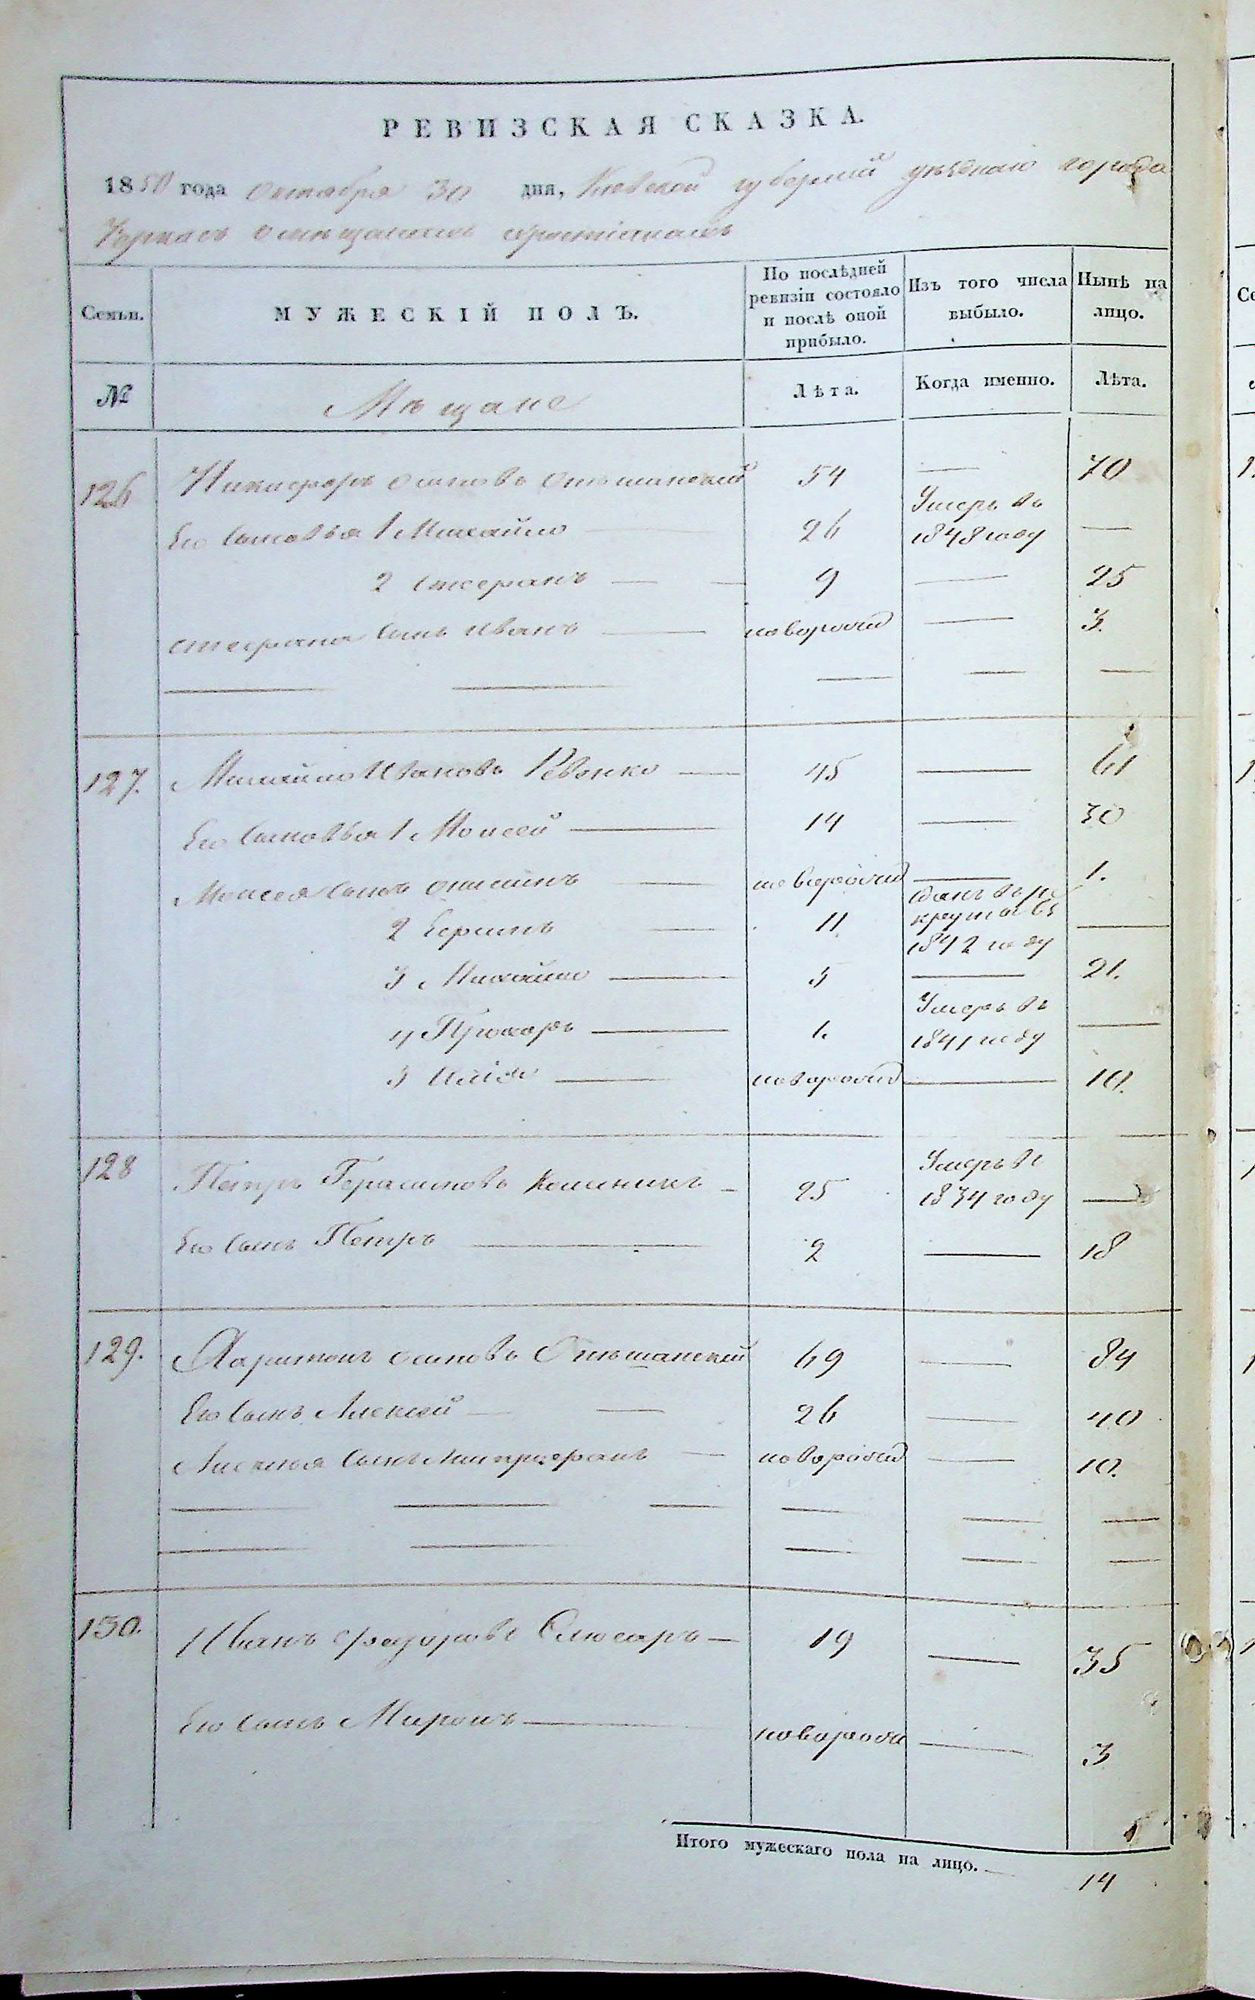 РЕВИЗСКАЯ СКАЗКА.
1850 года Октября 30 дня, Киевской губернии уѣзднаго города
Черкасъ о мѣщанахъ христіанахъ
Семьи.
МУЖЕСКІЙ ПОЛЪ.
По послѣдней ревизіи состояло и послѣ оной прибыло.
Изъ того числа выбыло.
Нынѣ на лицо.
№
Мѣщане
Лѣта.
Когда именно.
Лѣта.
126 Никифоръ Осиповъ 54 — 70
Его сыновья 1 Михайло 26 Умеръ въ 1848 году —
2 Стефанъ — 9 — 25
Стефана сынъ Иванъ — новорожд — 3.
127. Михайло Ивановъ Ревенко — 45 — 61
Его сыновья 1 Моисей — 14 — 30
Моисея сынъ — новорожд — 1.
2 — 11 Сданъ въ рекруты въ 1842 году —
3 Михайло — 5 — 21.
4 Прохоръ — 1. Умеръ въ 1841 году —
5 Илія — новорожд — 10.
128 Петръ Герасимовъ — 25 Умеръ въ 1834 году —
Его сынъ Петръ — 2 — 18
129. Харитонъ Осиповъ 69 — 84
Его сынъ Алексей — 26 — 40
Алексея сынъ — новорожд — 10.
130. Иванъ Федоровъ Слюсаръ — 19 — 35
Его сынъ Миронъ — новорожд — 3
Итого мужескаго пола на лицо. — 14